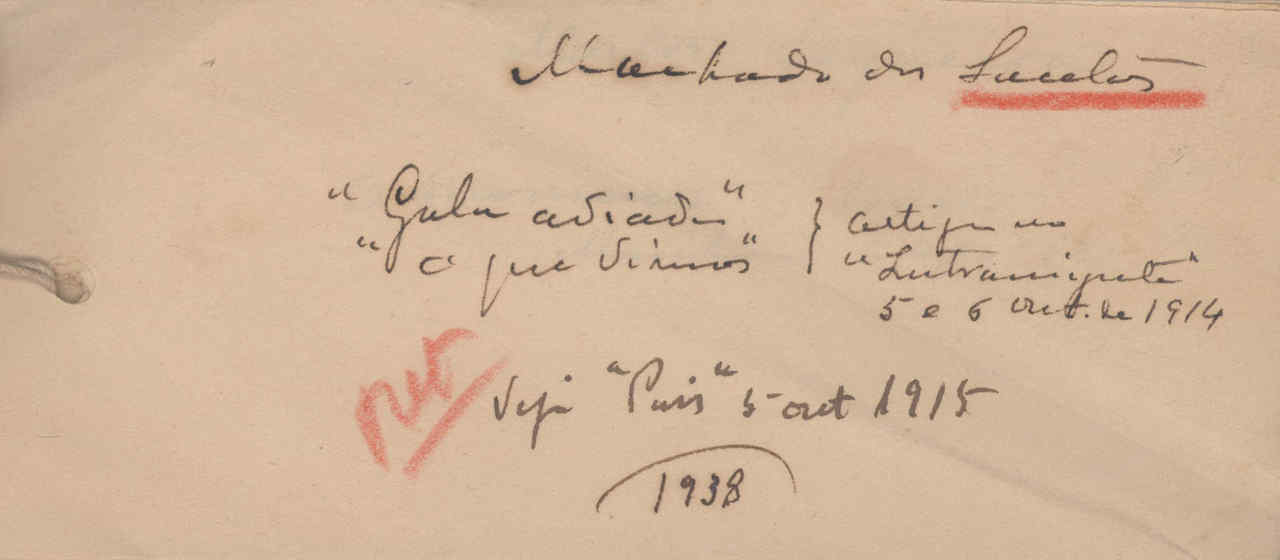 Machado dos Santos
"Gala adiada" } artigos no
"O que vimos" } "Intransigente"
5 e 6 out. de 1914
Veja "Pais" 5 out 1915
1938